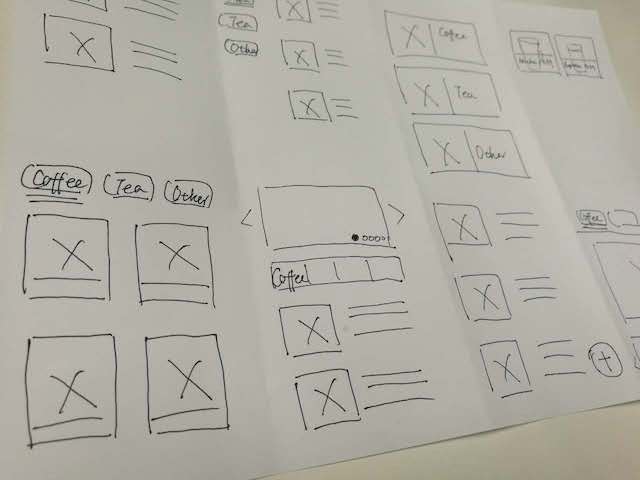 Tea
Other
Coffee
Tea
Other
Coffee
Tea
Other
Coffee
Coffee